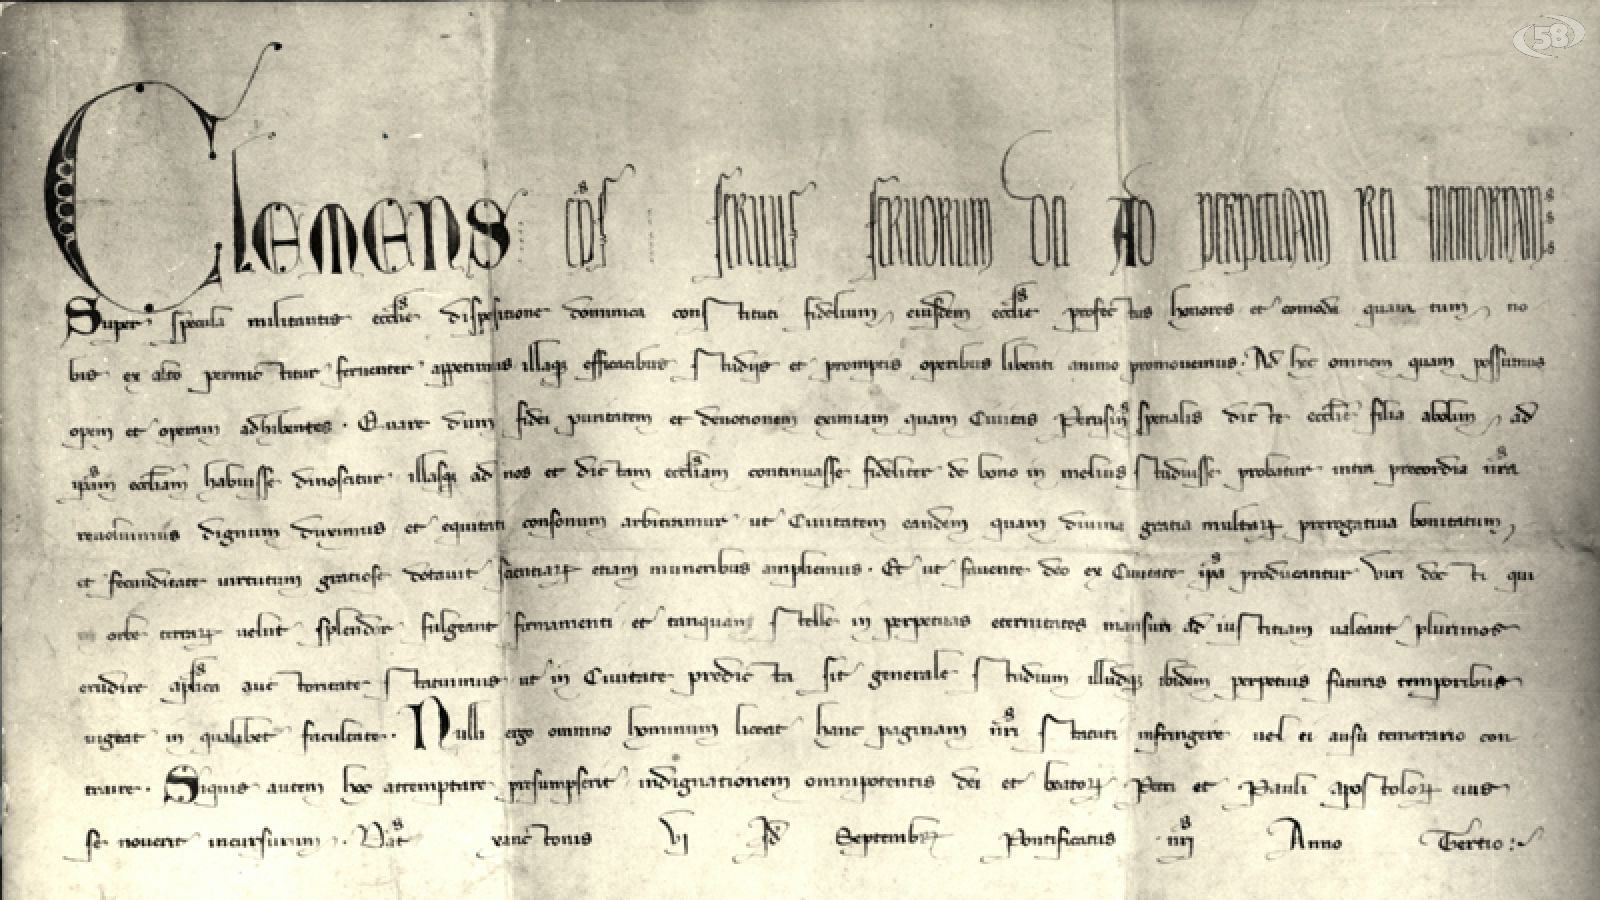 58
Clemens ep̄s seruus seruorum dei Ad perpetuam rei memoriam
Super specula militantis eccl̄ie dispositione dominica constituti fidelium, eiusdem eccl̄ie profectus honores et comoda quantum, no
bis ex alto permictitur feruenter appetimus illaq; efficacibus studijs et promptis operibus libenti animo promouemus. Ad hec omnem quam possumus
opem et operam adhibentes. Quare dum fidei puritatem et deuotionem eximiam quam Ciuitas Perusin̄ specialis dicte eccl̄ie filia ab olim, ad
ip̄am eccl̄iam habuisse dinoscitur illasq; ad nos et dictam eccl̄iam continuasse fideliter de bono in melius studuisse probatur intra precordia n̄ra
reuoluimus dignum duximus et equitati consonum arbitramur ut Ciuitatem eandem quam diuina gratia multaꝝ prerogatiua bonitatum,
et fecunditate uirtutum gratiose dotauit scientiaꝝ etiam muneribus ampliemus. Et ut fauente deo ex Ciuitate ip̄a producantur Viri docti qui
orbe terraꝝ uelut splendor fulgeant firmamenti et tanquam stelle in perpetuas eternitates mansuri ad iustitiam ualeant plurimos
erudire ap̄lica auctoritate statuimus ut in Ciuitate predicta sit generale studium illudq; ibidem perpetuis futuris temporibus
uigeat in qualibet facultate. Nulli ergo omnino hominum liceat hanc paginam n̄ri statuti infringere uel ei ausu temerario con
traire. Siquis autem hoc attemptare presumpserit indignationem omnipotentis dei et beatoꝝ Petri et Pauli apostoloꝝ eius
se nouerit incursurum. Dat̄ Vj Id Septembꝝ Pontificatus n̄ri Anno Tertio: